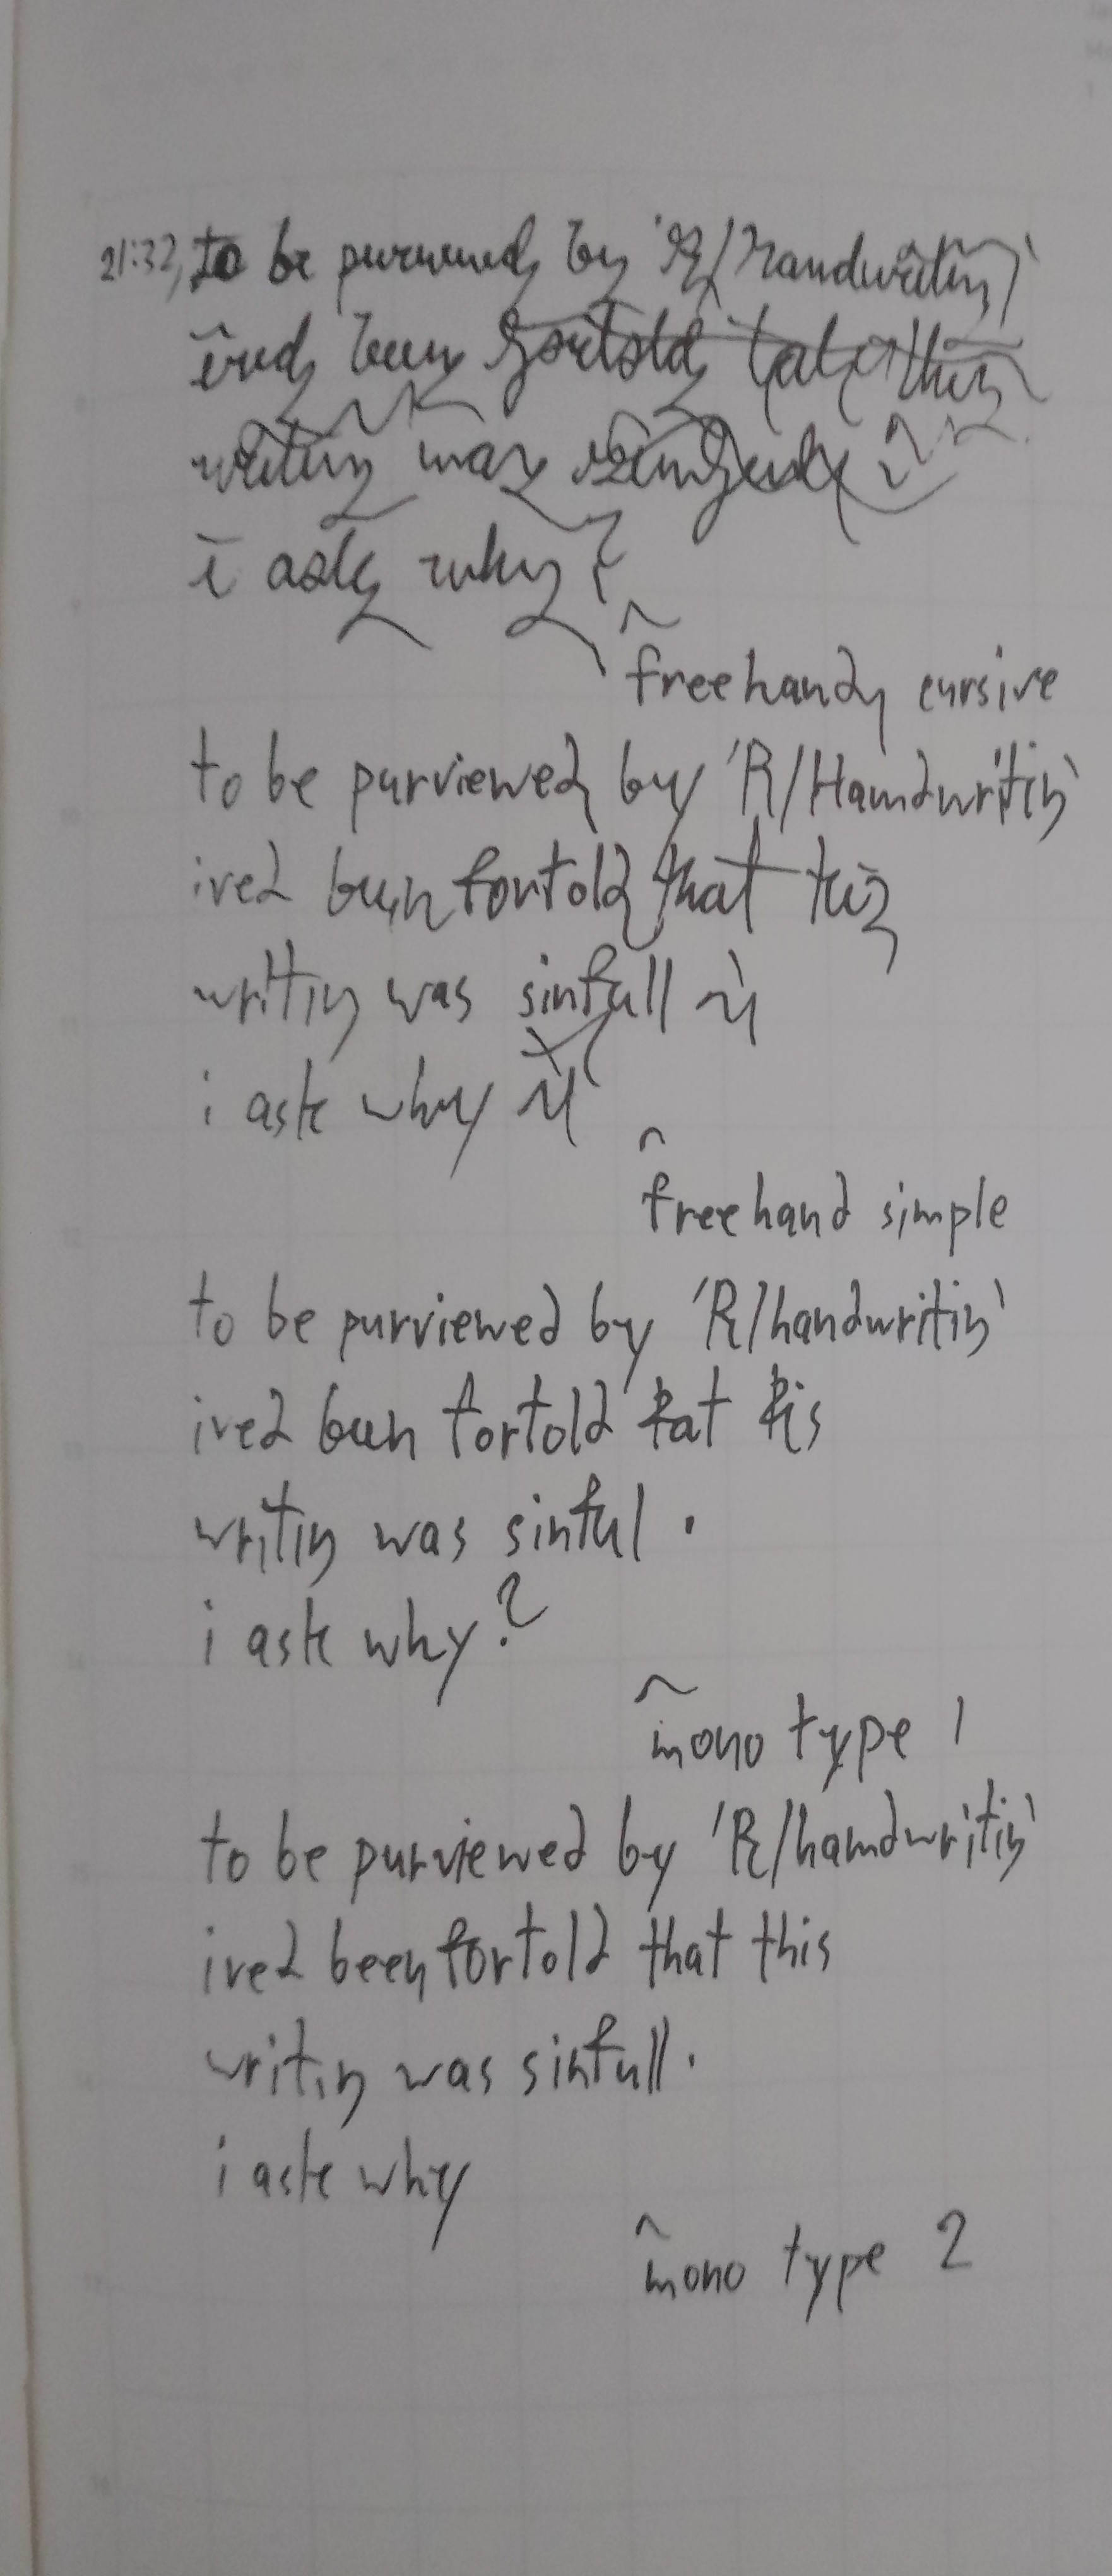 21:32, to be purviewed by 'R/Handwritin'
ived been fortold that this
writing was sinfull
i ask why?
freehand cursive
to be purviewed by 'R/Handwritin'
ived been fortold that
writtin was sinfull
i ask why
freehand simple
to be purviewed by 'R/handwritin'
ived been fortold
writtin was sinful.
i ask why?
mono type 1
to be purviewed by 'R/handwritin'
ived been fortold that this
writin was sinfull.
i ask why
mono type 2